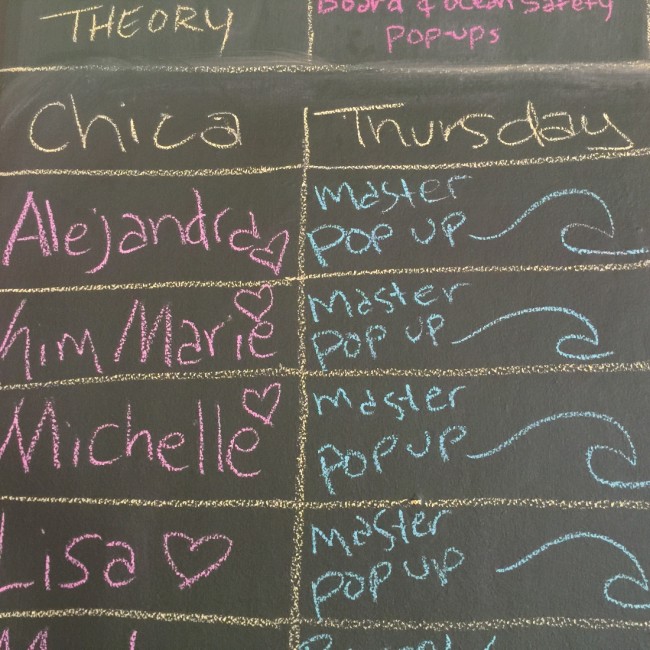 THEORY
Board & Ocean Safety
Pop-ups
Chica
Thursday
Alejandra
Master
pop up
Kim Marie
Master
pop up
Michelle
Master
pop up
Lisa
Master
pop up